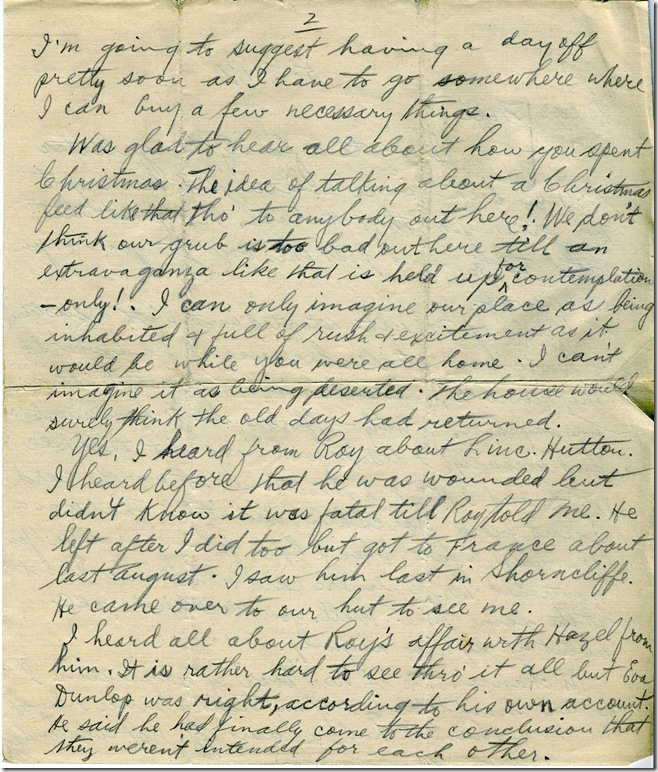 2
I'm going to suggest having a day off
pretty soon as I have to go somewhere where
I can buy a few necessary things.
Was glad to hear all about how you spent
Christmas. The idea of talking about a Christmas
feed like that tho' to anybody out here! We don't
think our grub is too bad out here till an
extravaganza like that is held up for contemplation
- only! I can only imagine our place as being
inhabited & full of rush & excitement as it
would be while you were all home. I can't
imagine it as being deserted. The house would
surely think the old days had returned.
Yes, I heard from Roy about Linc. Hutton.
I heard before that he was wounded but
didn't know it was fatal till Roy told me. He
left after I did too but got to France about
last August. I saw him last in Shorncliffe.
He came over to our hut to see me.
I heard all about Roy's affair with Hazel from
him. It is rather hard to see thro' it all but Eva
Dunlop was right, according to his own account.
He said he had finally come to the conclusion that
they weren't intended for each other.